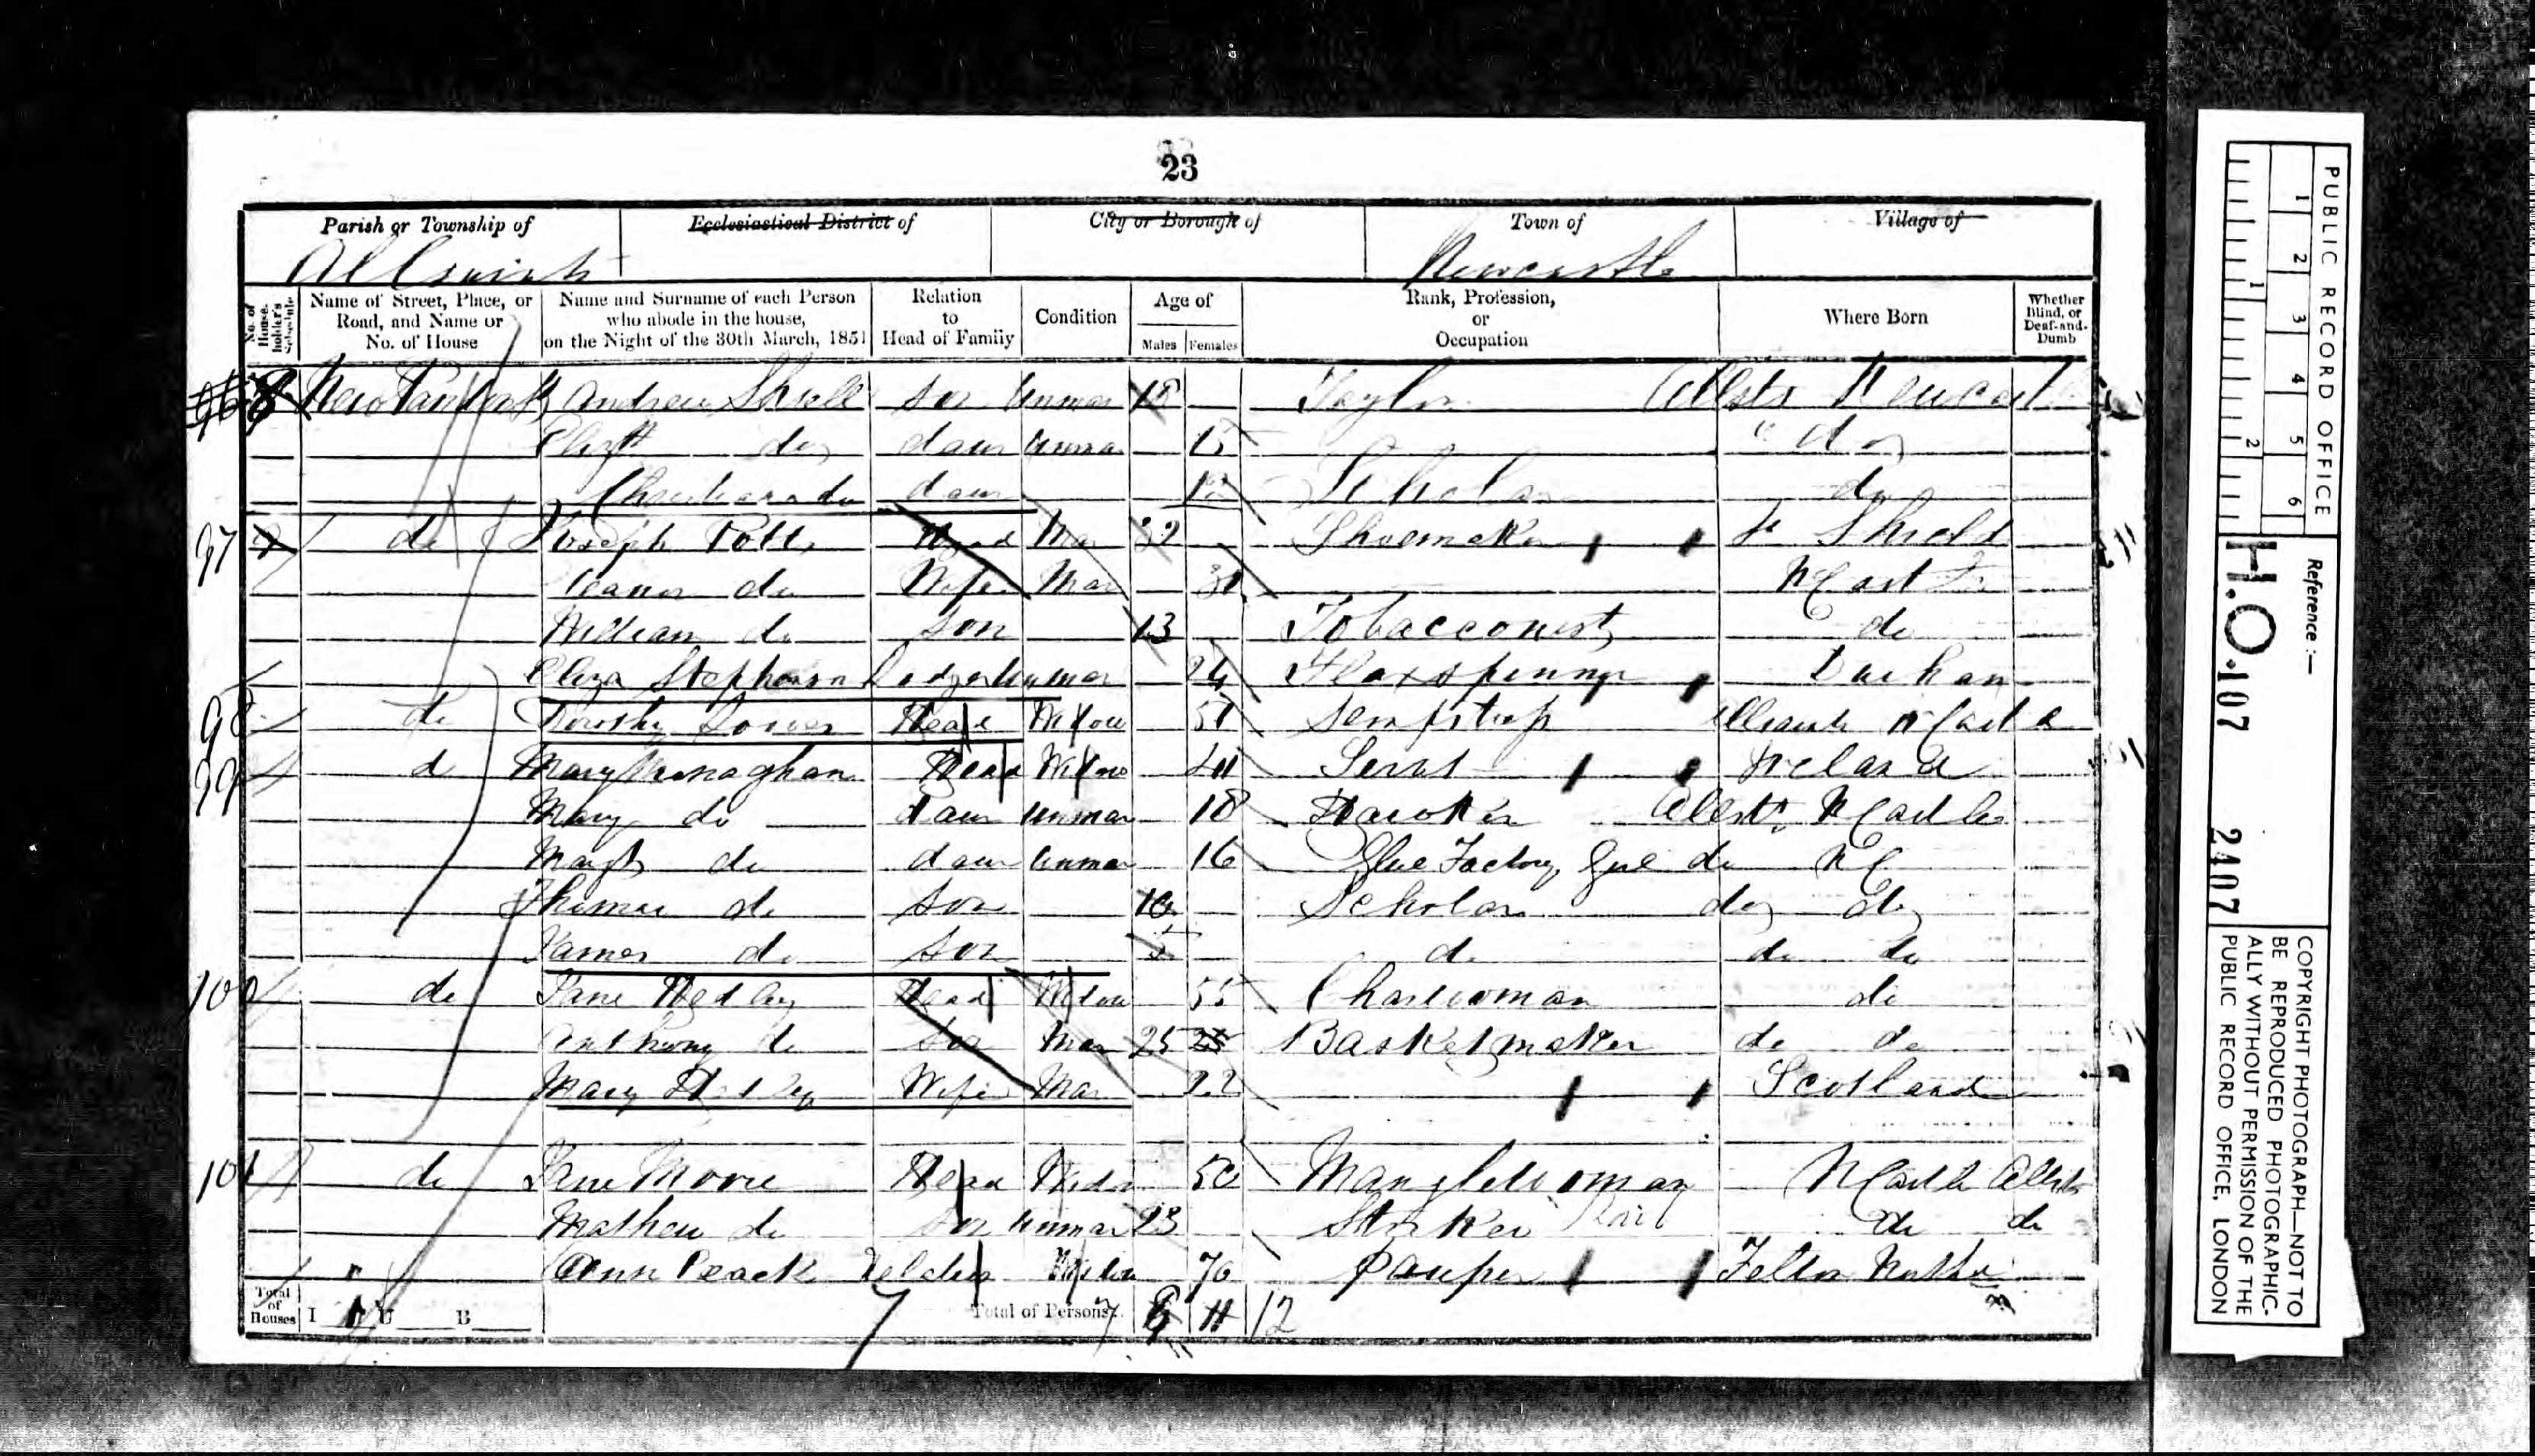 23
Parish or Township of
Ecclesiastical District of
City or Borough of
Town of
Village of
All Saints
Newcastle
No. of House-holder's Schedule
Name of Street, Place, or Road, and Name or No. of House
Name and Surname of each Person who abode in the house, on the Night of the 30th March, 1851
Relation to Head of Family
Condition
Age of
Males
Females
Rank, Profession, or Occupation
Where Born
Whether Blind, or Deaf-and-Dumb
Andrew son Unmar 18 Taylor Allsts
do daur Unmar 15 do
do daur Scholar do
97 do Joseph Potts Head Mar 32 Shoemaker Shield
do Wife Mar 31
William do son 13 Tobacconist do
Eliza Stephenson Lodger Unmar 24 Flaxspinner Durham
98 do Dorothy Head Widow 51 Sempstress
99 do Mary Head Widow Servt Ireland
Mary do daur Unmar 18 Hawker Allsts NCastle
Margt do daur Unmar 16 Glue Factory Girl do NC
Thomas do son 10 Scholar do do
James do son 5 do do do
100 do Jane Hedley Head Widow 55 Charwoman do
Anthony do son Mar 25 25 Basketmaker do do
Mary Hedley Wife Mar 22 Scotland
101 do Jane Moore Head Widow 50 Manglewoman NCastle Allsts
Mathew do son Unmar 23 do do
Ann Widow 70 pauper Felton
Total of Houses I U B
Total of Persons 7 11 12
PUBLIC RECORD OFFICE
1 2 3 4 5 6
1 2
Reference :—
H.O. 107
2407
COPYRIGHT PHOTOGRAPH—NOT TO
BE REPRODUCED PHOTOGRAPHIC-
ALLY WITHOUT PERMISSION OF THE
PUBLIC RECORD OFFICE, LONDON